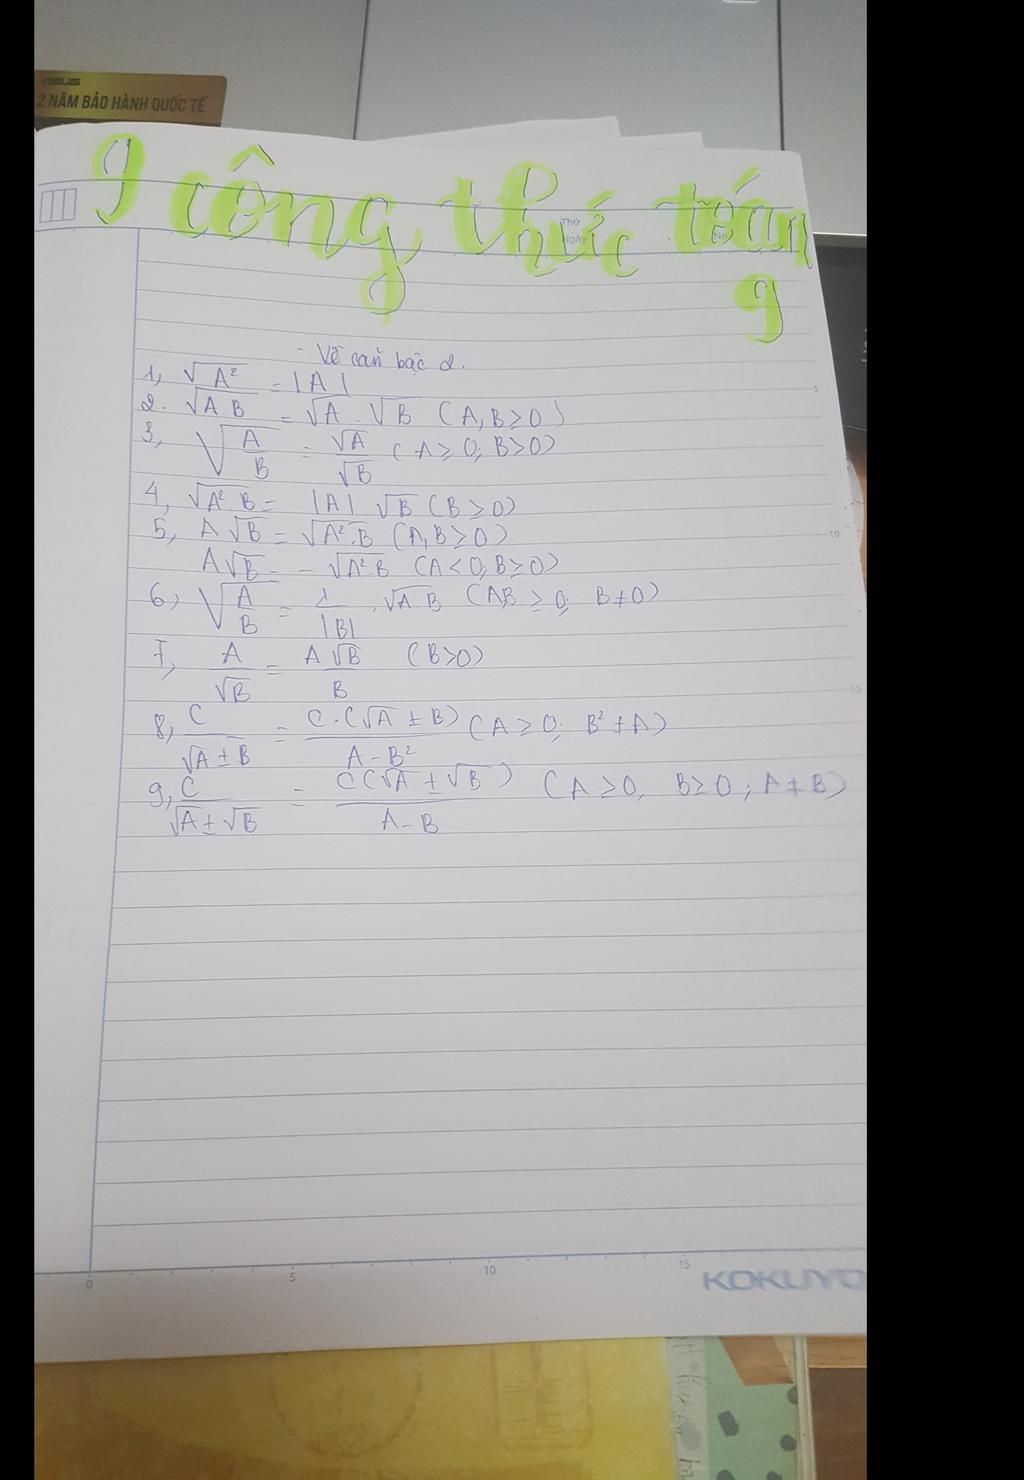 ASUS
2 NĂM BẢO HÀNH QUỐC TẾ
9 công thức toán
Thứ
Ngày
No
9
- Về căn bậc 2.
1, √A² = |A|
2. √A.B = √A . √B (A,B ≥ 0)
3, √(A/B) = √A/√B (A ≥ 0; B > 0)
4, √A².B = |A| . √B (B ≥ 0)
5, A√B = √A².B (A,B ≥ 0)
A√B = - √A².B (A < 0; B ≥ 0)
6, √(A/B) = 1/|B| . √A.B (AB ≥ 0; B ≠ 0)
7, A/√B = A√B/B (B > 0)
8, C/(√A ± B) = C.(√A ± B)/(A - B²) (A ≥ 0; B² ≠ A)
9, C/(√A ± √B) = C(√A ± √B)/(A - B) (A ≥ 0; B ≥ 0; A ≠ B)
5
10
15
0 5 10 15
KOKUYO